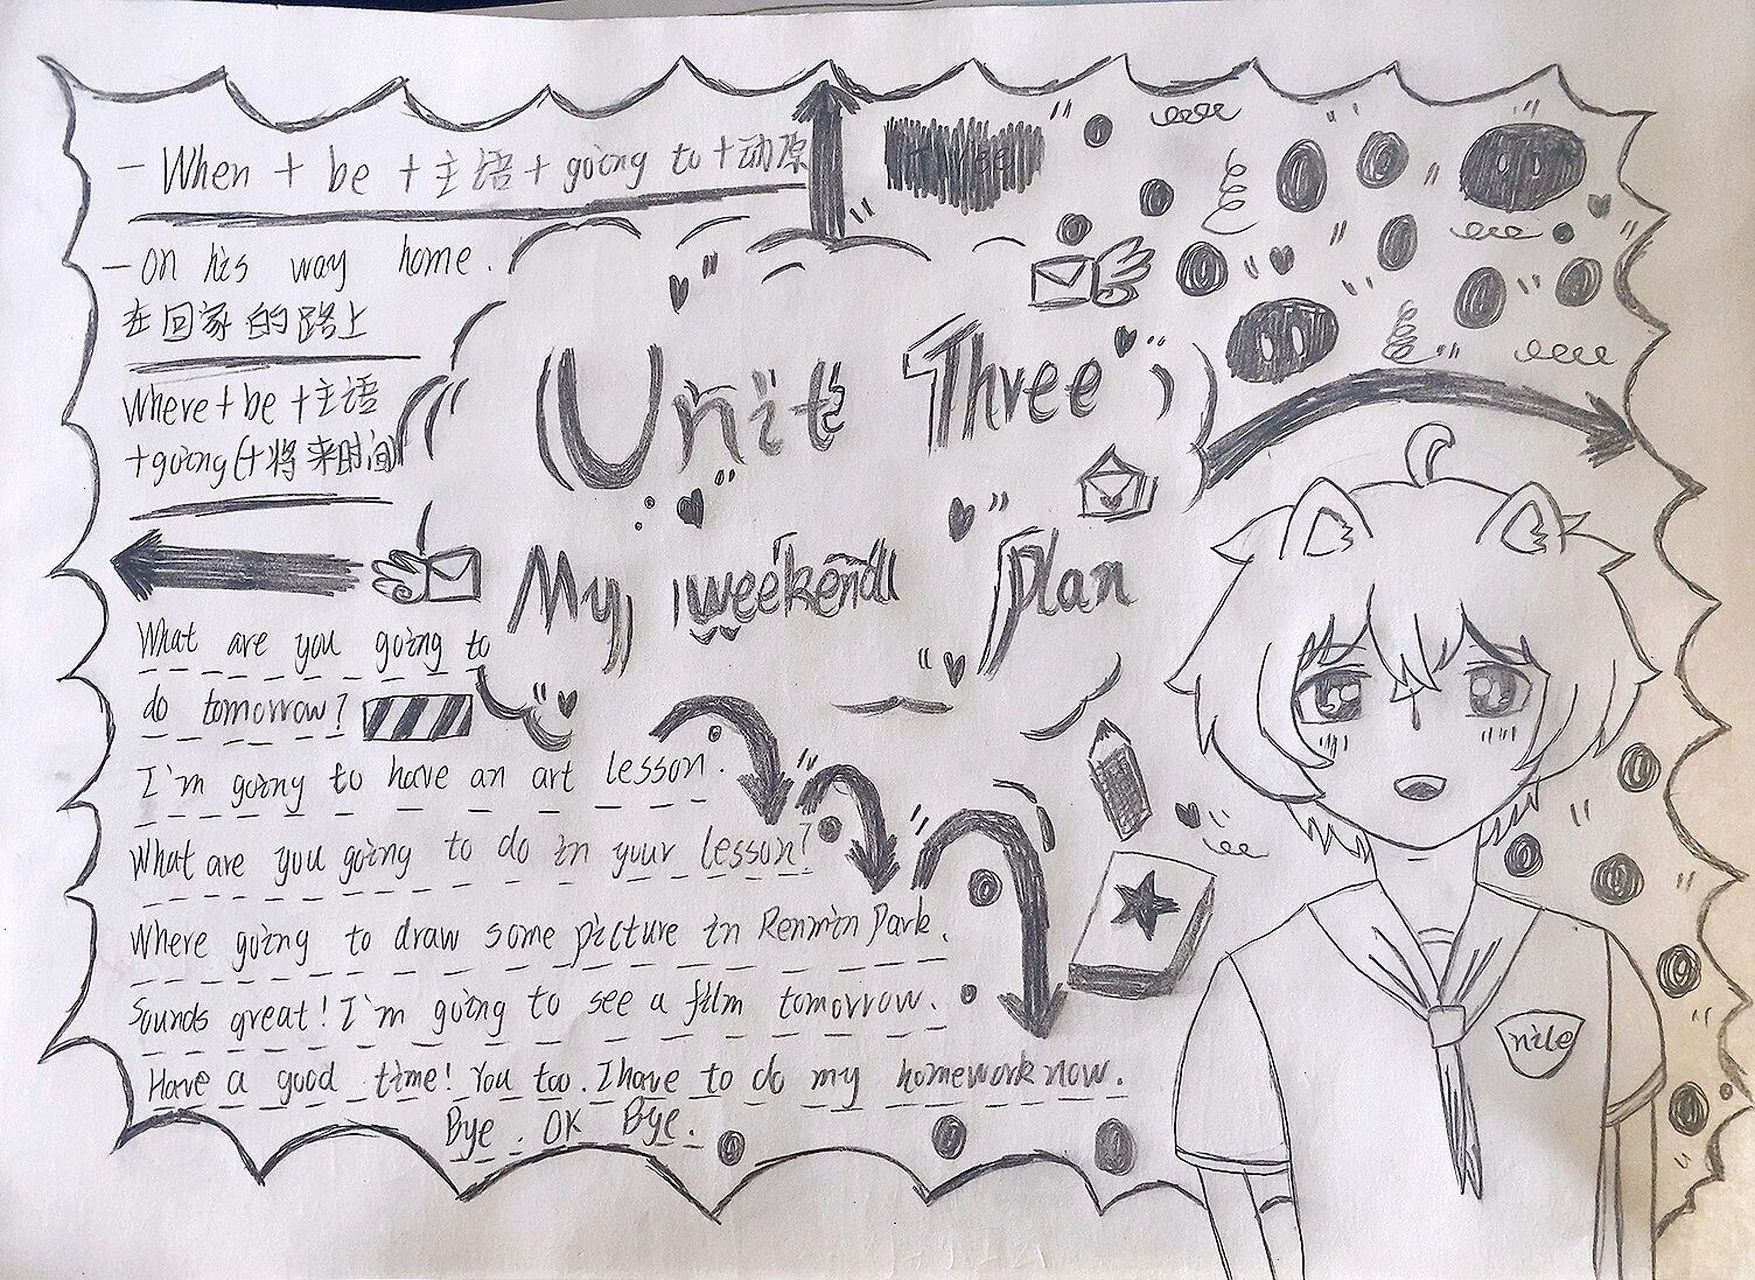 - When + be + 主语 + going to + 动原
- On his way home.
在回家的路上
Where + be + 主语
+ going (+ 将来时间)
Unit Three
My weekend plan
What are you going to
do tomorrow?
I'm going to have an art lesson.
What are you going to do in your lesson?
Where going to draw some picture in Renmin Park.
Sounds great! I'm going to see a film tomorrow.
Have a good time! You too. I have to do my homework now.
Bye. OK Bye.
nile